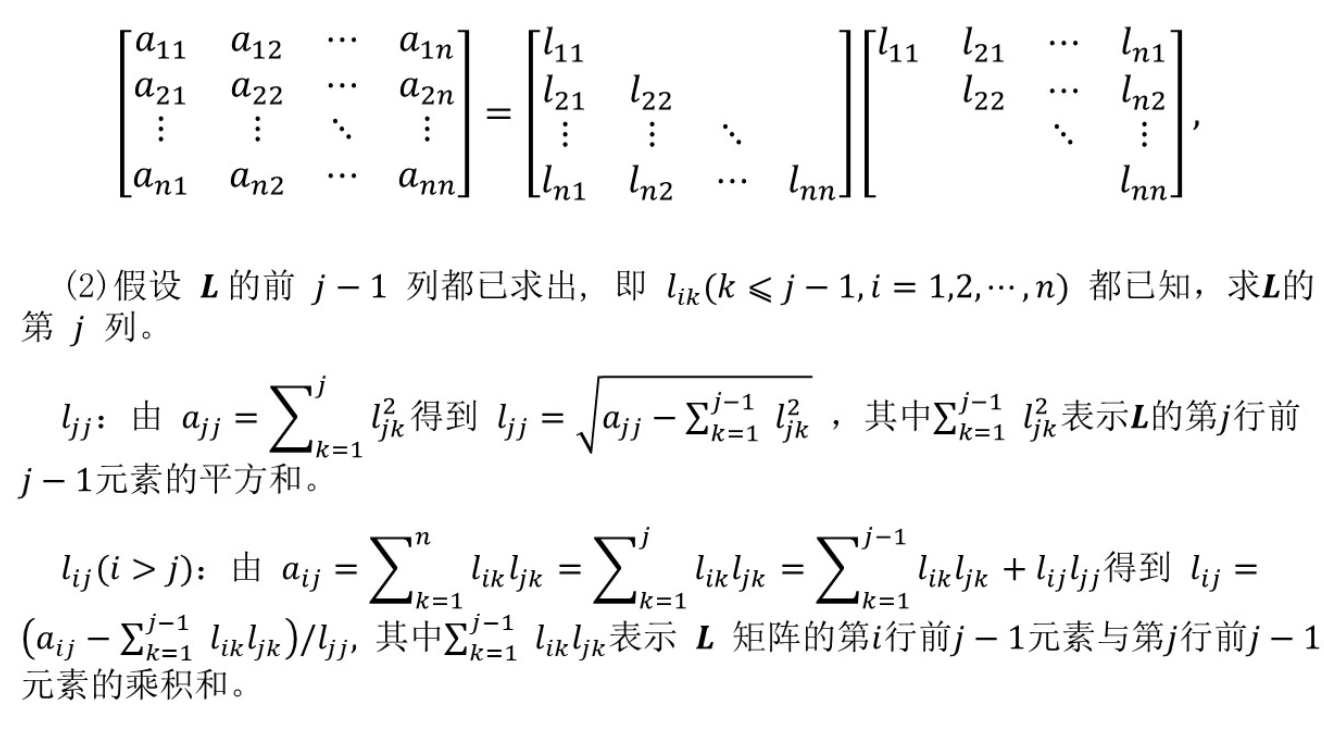 [a₁₁ a₁₂ ⋯ a₁ₙ; a₂₁ a₂₂ ⋯ a₂ₙ; ⋮ ⋮ ⋱ ⋮; aₙ₁ aₙ₂ ⋯ aₙₙ] = [l₁₁; l₂₁ l₂₂; ⋮ ⋮ ⋱; lₙ₁ lₙ₂ ⋯ lₙₙ] [l₁₁ l₂₁ ⋯ lₙ₁; l₂₂ ⋯ lₙ₂; ⋱ ⋮; lₙₙ],
(2)假设 L 的前 j − 1 列都已求出, 即 l_{ik}(k ⩽ j − 1, i = 1,2,⋯,n) 都已知，求L的
第 j 列。
l_{jj}：由 a_{jj} = ∑_{k=1}^{j} l_{jk}^2得到 l_{jj} = √(a_{jj} − ∑_{k=1}^{j−1} l_{jk}^2) ，其中∑_{k=1}^{j−1} l_{jk}^2表示L的第j行前
j − 1元素的平方和。
l_{ij}(i > j)：由 a_{ij} = ∑_{k=1}^{n} l_{ik}l_{jk} = ∑_{k=1}^{j} l_{ik}l_{jk} = ∑_{k=1}^{j−1} l_{ik}l_{jk} + l_{ij}l_{jj}得到 l_{ij} =
(a_{ij} − ∑_{k=1}^{j−1} l_{ik}l_{jk})/l_{jj}, 其中∑_{k=1}^{j−1} l_{ik}l_{jk}表示 L 矩阵的第i行前j − 1元素与第j行前j − 1
元素的乘积和。